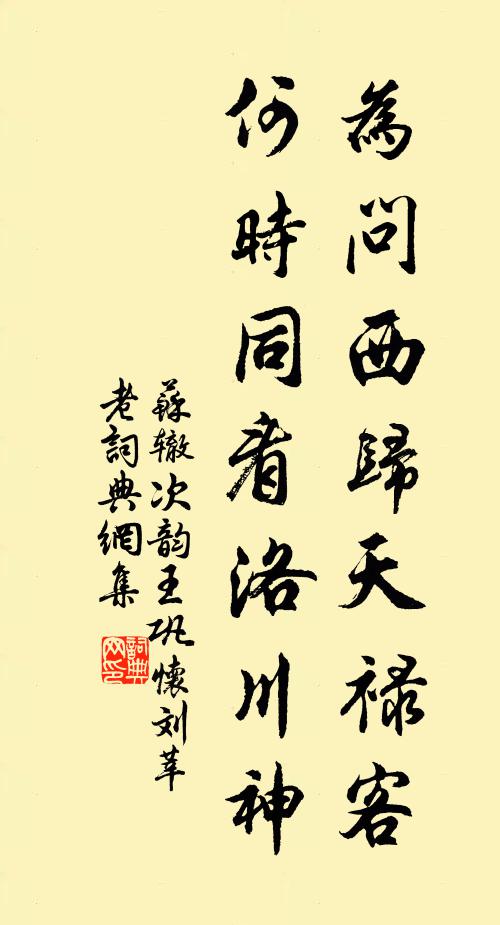 為問西歸天祿客
何時同看洛川神
蘇辙次韵王巩懷刘莘
老詞典網集
詞典
网印